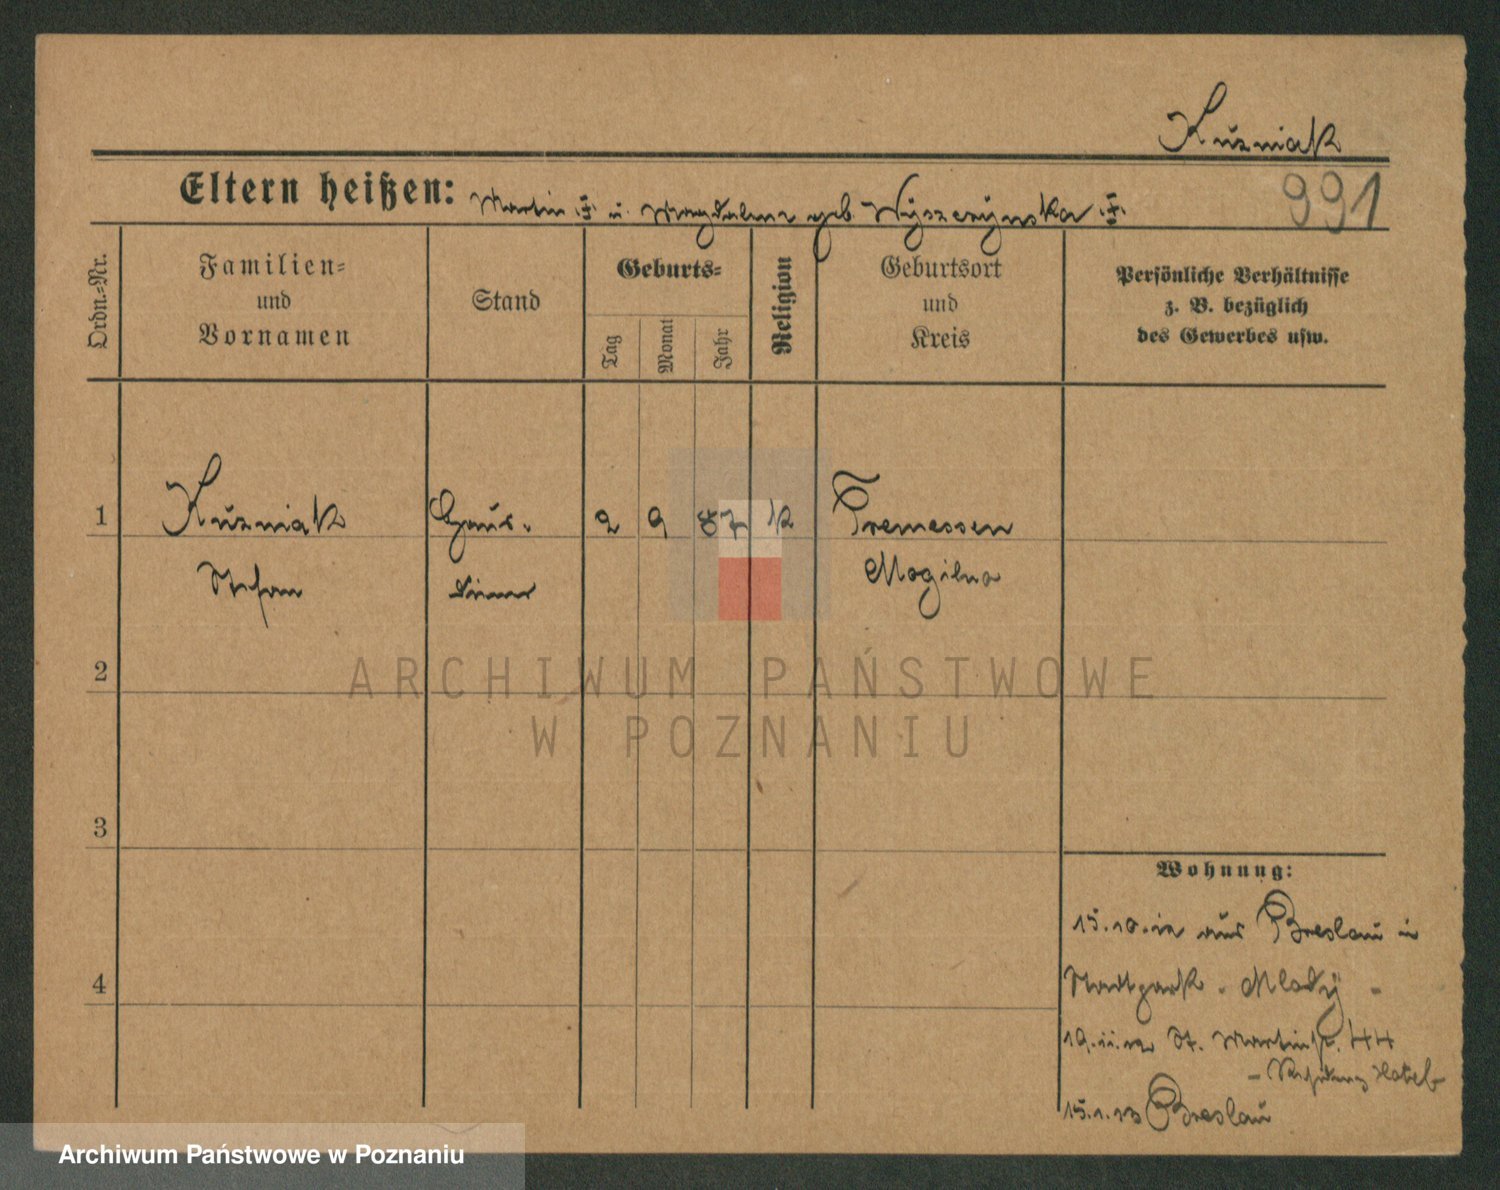 Kuźniak
991
Eltern heißen: Martin .†. u. Magdalena geb. Wyszczynska .†.
Ordn.-Nr.
Familien-
und
Vornamen
Stand
Geburts-
Tag
Monat
Jahr
Religion
Geburtsort
und
Kreis
Persönliche Verhältnisse
z. B. bezüglich
des Gewerbes usw.
1
Kuźniak
Haus-
2
9
87
k
Tremessen
Stefan
diener
Mogilno
2
ARCHIWUM PAŃSTWOWE
W POZNANIU
3
Wohnung:
15.10.12 aus Breslau in
Stadtpark - Mlody -
4
19.11.12 St. Martinstr. 44
15.1.13 Breslau
Archiwum Państwowe w Poznaniu